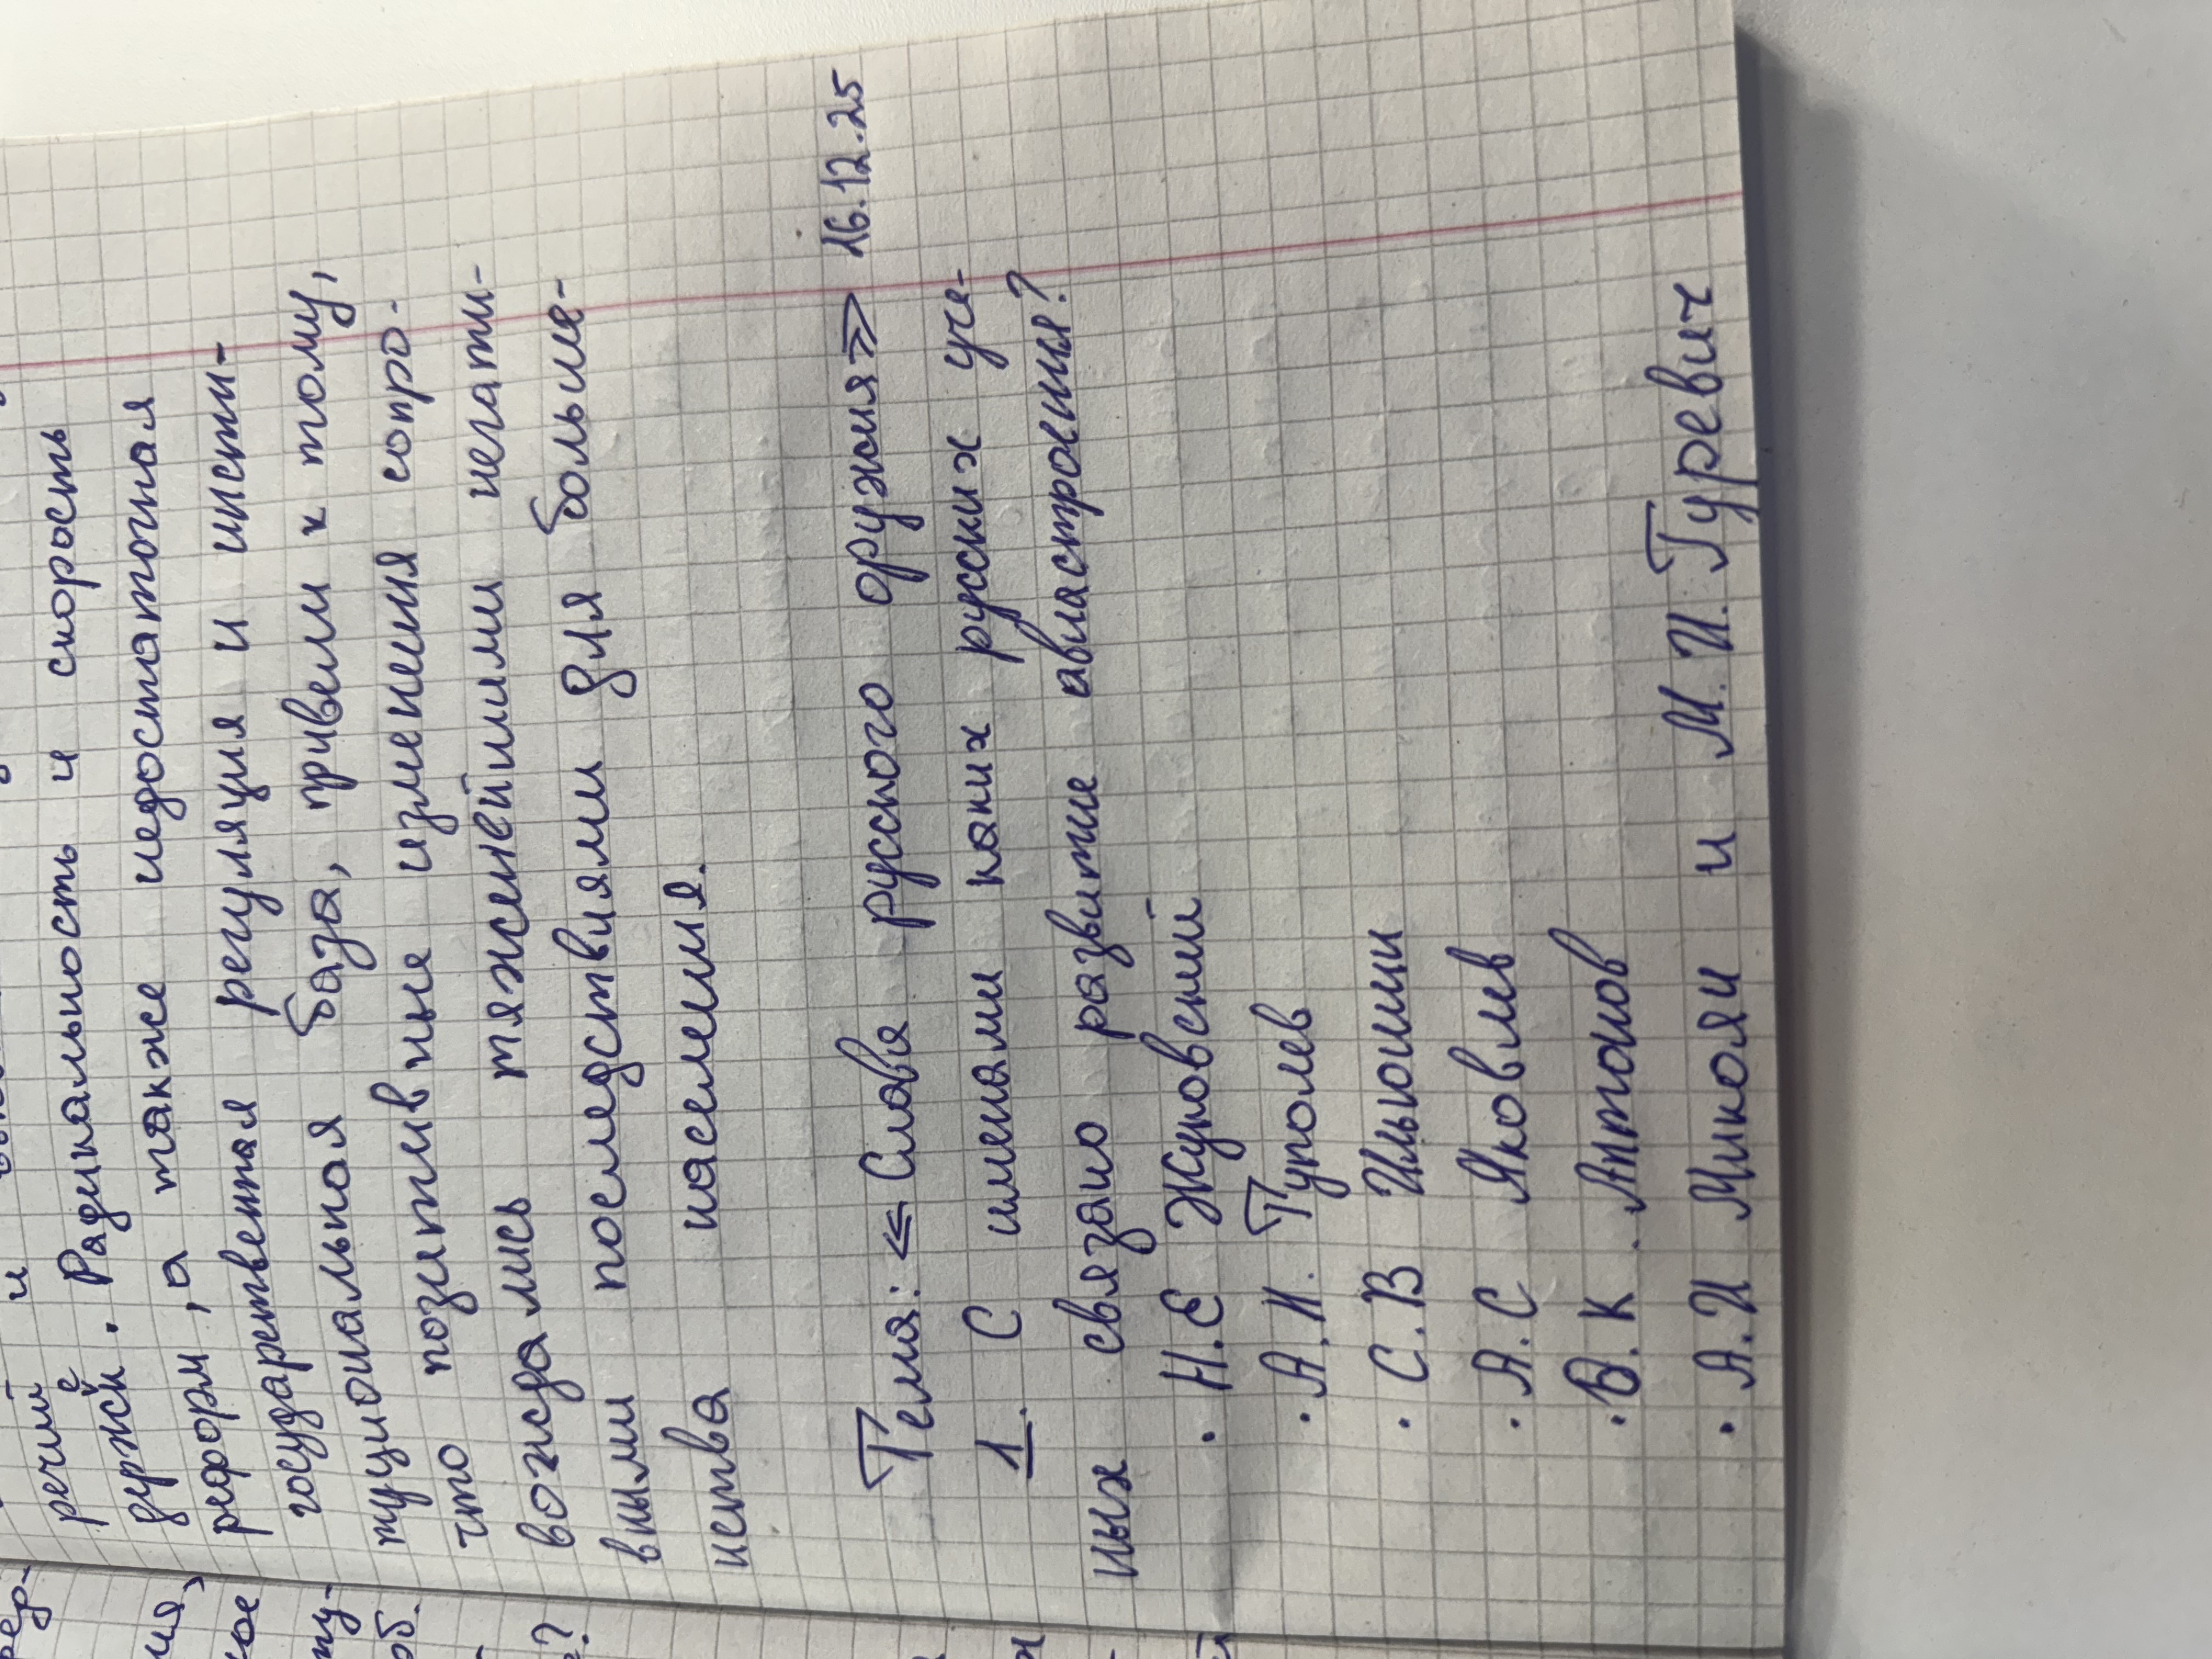 речий и
держй е. Радикальность и скорость
реформ, а также недостаточная
государетвенная регуляция и инсти-
туциональная база, привели к тому,
что позитивные изменения сопро-
вождались тяжнейшими негати-
вными последствиями для больше-
нства населения.
Тема: «Слава русского оружия» 16.12.25
1. С именами каких русских уче-
ных связано развитие авиастроения?
• Н.Е Жуковский
• А.Н. Туполев
• С.В Ильюшин
• А.С Яковлев
• В.К. Антонов
• А.И Микоян и М.И.Гуревич